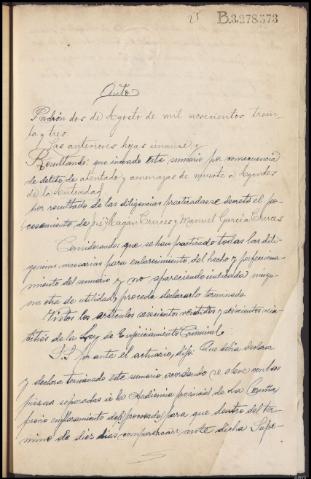 25 B.3.278.373
Auto
Padrón dos de Agosto de mil novecientos trein-
ta y tres.
Las anteriores hojas únanse y
Resultando: que incoado este sumario por consecuencia
de delito de atentado y amenazas de muerte a Agentes
de la Autoridad
por resultado de las diligencias practicadas se decretó el pro-
cesamiento de José Magán y Manuel García
Considerando que se han practicado todas las dili-
gencias necesarias para esclarecimiento del hecho y perfecciona-
miento del sumario y no apareciendo indicada ningu-
na otra de utilidad, procede declararlo terminado.
Vistos los artículos seiscientos veintidós y seiscientos vein-
titrés de la Ley de Enjuiciamiento Criminal.
S.S. por ante el actuario, dijo: Que debía declarar
y declara terminado este sumario cuando se eleve con las
piezas separadas a la Audiencia provincial de La Coruña,
previo emplazamiento del procesado, para que dentro del tér-
mino de diez días comparezcan ante dicha Supe-